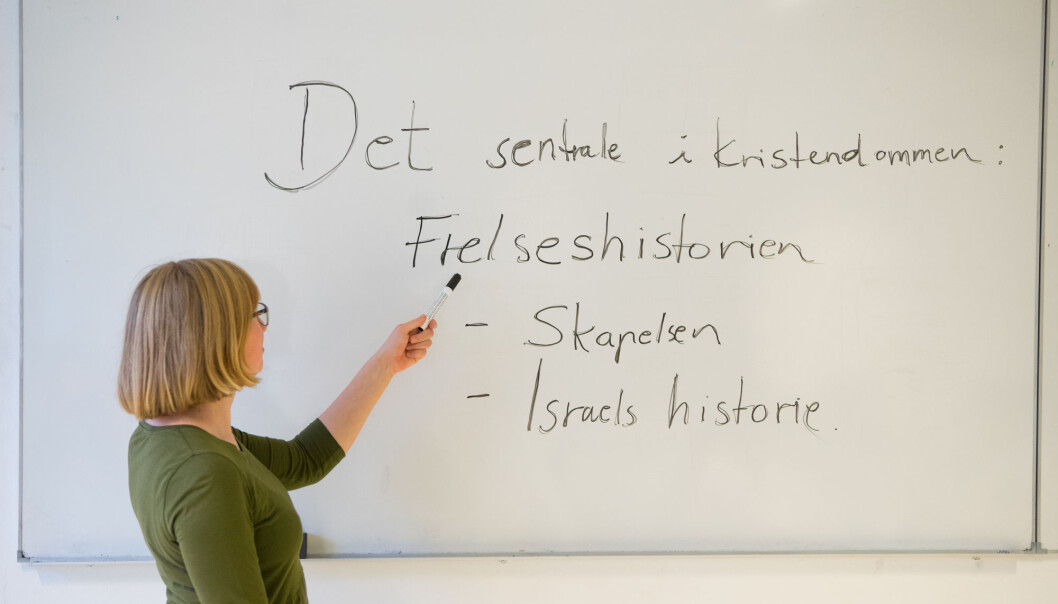 Det sentrale i kristendommen:
Frelseshistorien
- Skapelsen
- Israels historie.